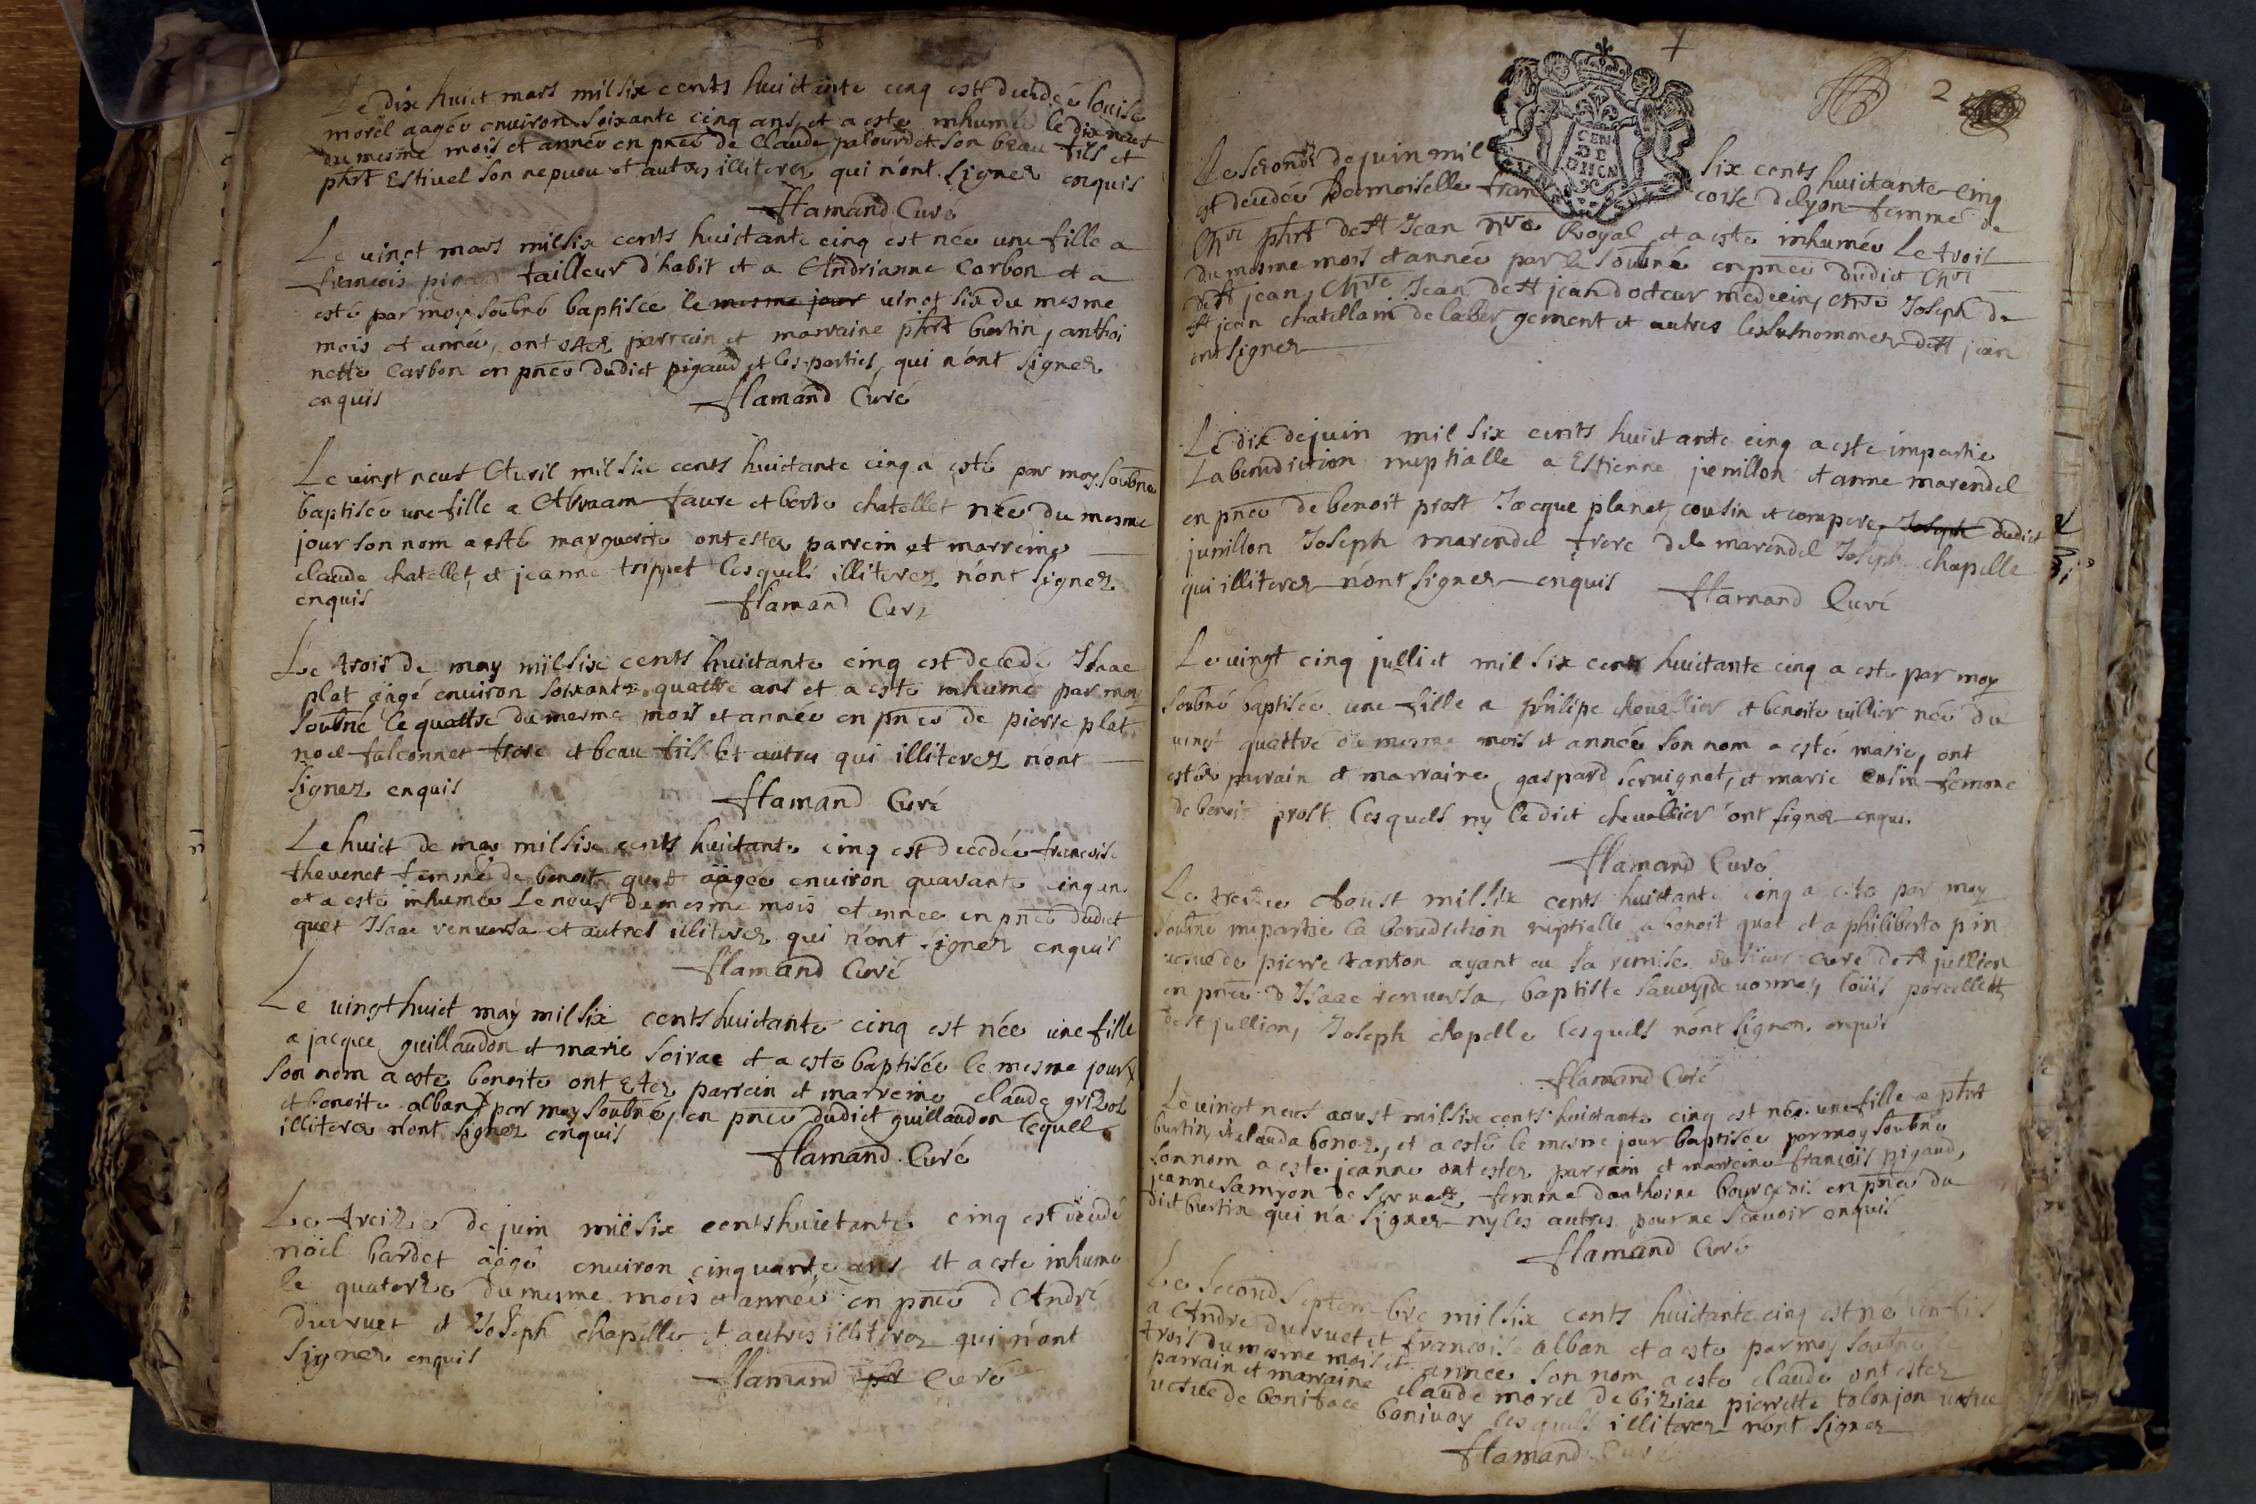 Le dix huict mars mil six cents huictante cinq est decedée louise
morel aagée enuiron soixante cinq ans, et a esté inhumée le dix neuf
du mesme mois et année en pñce de Claude palourdet son beau fils et
phrt Estiuel son nepueu et autres illiterez qui n'ont signez enquis
flamand Curé
Le uingt mars mil six cents huictante cinq est née une fille a
francois pigaud tailleur d'habit et a Andrianne Carbon et a
esté par moy soubné baptisée le mesme jour uingt six du mesme
mois et année, ont estez parrain et marraine phrt burtin, anthoi
nette Carbon en pñce dudict pigaud et les parties, qui n'ont signez
enquis flamand Curé
Le uingt neuf Auril mil six cents huictante cinq a esté par moy soubné
baptisée une fille a Abraam faure et berte chatellet née du mesme
jour son nom a esté marguerite ont estez parrein et marreine
claude chatellet, et jeanne trippet lesquels illiterez n'ont signez
enquis flamand Curé
Le trois de may mil six cents huictante cinq est decedé Isaac
plat aagé enuiron soixante quattre ans et a esté inhumé par moy
soubné le quattre du mesme mois et année en pñce de pierre plat
noel falconnet frere et beau fils et autres qui illiterez n'ont
signez enquis flamand Curé
Le huict de may mil six cents huictante cinq est decedée francoise
theuenet femme de benoit quet aagée enuiron quarante cinq ans
et a esté inhumée le neuf du mesme mois et année en pñce dudict
quet Isaac renuersa et autres illiterez qui n'ont signez enquis
flamand Curé
Le uingt huict may mil six cents huictante cinq est née une fille
a jacque guillaudon et marie soirae et a esté baptisée le mesme jour
son nom a esté benoite ont estez parrein et marreine claude grizot
et benoite alban par moy soubné, en pñce dudict guillaudon lequell
illiterez n'ont signez enquis
flamand Curé
Le treize de juin mil six cents huictante cinq est decedé
noël bardet aagé enuiron cinquante ans et a esté inhumé
le quatorze du mesme mois et année en pñce d'André
Duruet et Joseph chapelle et autres illiterez qui n'ont
signez enquis
flamand Curé
2
GEN
DE
DIICN
Le second de juin mil six cents huictante cinq
est decedée Demoiselle francoise delyon femme de
Mre phrt de St Jean Nre Royal et a esté inhumée le trois
du mesme mois et année par le soubné en pñce dudict Mre
de St jean, Mre Jean de St jean docteur medecin, Mre Joseph de
St jean chatellain de laber gement et autres les susnommez de St jean
ont signez
Le dix de juin mil six cents huictante cinq a esté impartie
La benediction nuptialle a Estienne junillon et anne marendel
en pñce de benoit prost Jacque planet, cousin et compere, Joseph dudict
junillon Joseph marendel frere de la marendel Joseph chapelle
qui illiterez n'ont signez enquis flamand Curé
Le uingt cinq julliet mil six cents huictante cinq a esté par moy
soubné baptisée une fille a philipe cheuallier et benoite uillier née du
uingt quattre du mesme mois et année son nom a esté marie, ont
estez parrain et marraine, gaspard seruignet, et marie cusin femme
de benoit prost lesquels ny le dict cheuallier ont signez enquis
flamand Curé
Le treize Aoust mil six cents huictante cinq a esté par moy
soubné impartie la benediction nuptialle a benoit quet et a philiberte pin
uefue de pierre tanton ayant eu la remise du sieur curé de St jullien
en pñce d'Isaac renuersa, baptiste sauuy de uonnes, loüis porcellet
de St jullien, Joseph chapelle lesquels n'ont signez enquis
flamand Curé
Le uingt neuf aoust mil six cents huictante cinq est née une fille a phrt
burtin, et clauda bonoz, et a esté le mesme jour baptisée par moy soubné
son nom a esté jeanne ont estez parrain et marreine françois pigaud,
jeanne samyon femme d'anthoine bourgeois en pñce du
dict burtin qui n'a signez ny les autres pour ne scauoir enquis
flamand Curé
Le second Septembre mil six cents huictante cinq est né un fils
a André Duruet et francoise alban et a esté par moy soubné le
trois du mesme mois et année son nom a esté claude ont estez
parrain et marraine claude morel de biziat pierrette tolonjon uefue
uefue de boniface boniuay lesquels illiterez n'ont signez
flamand Curé